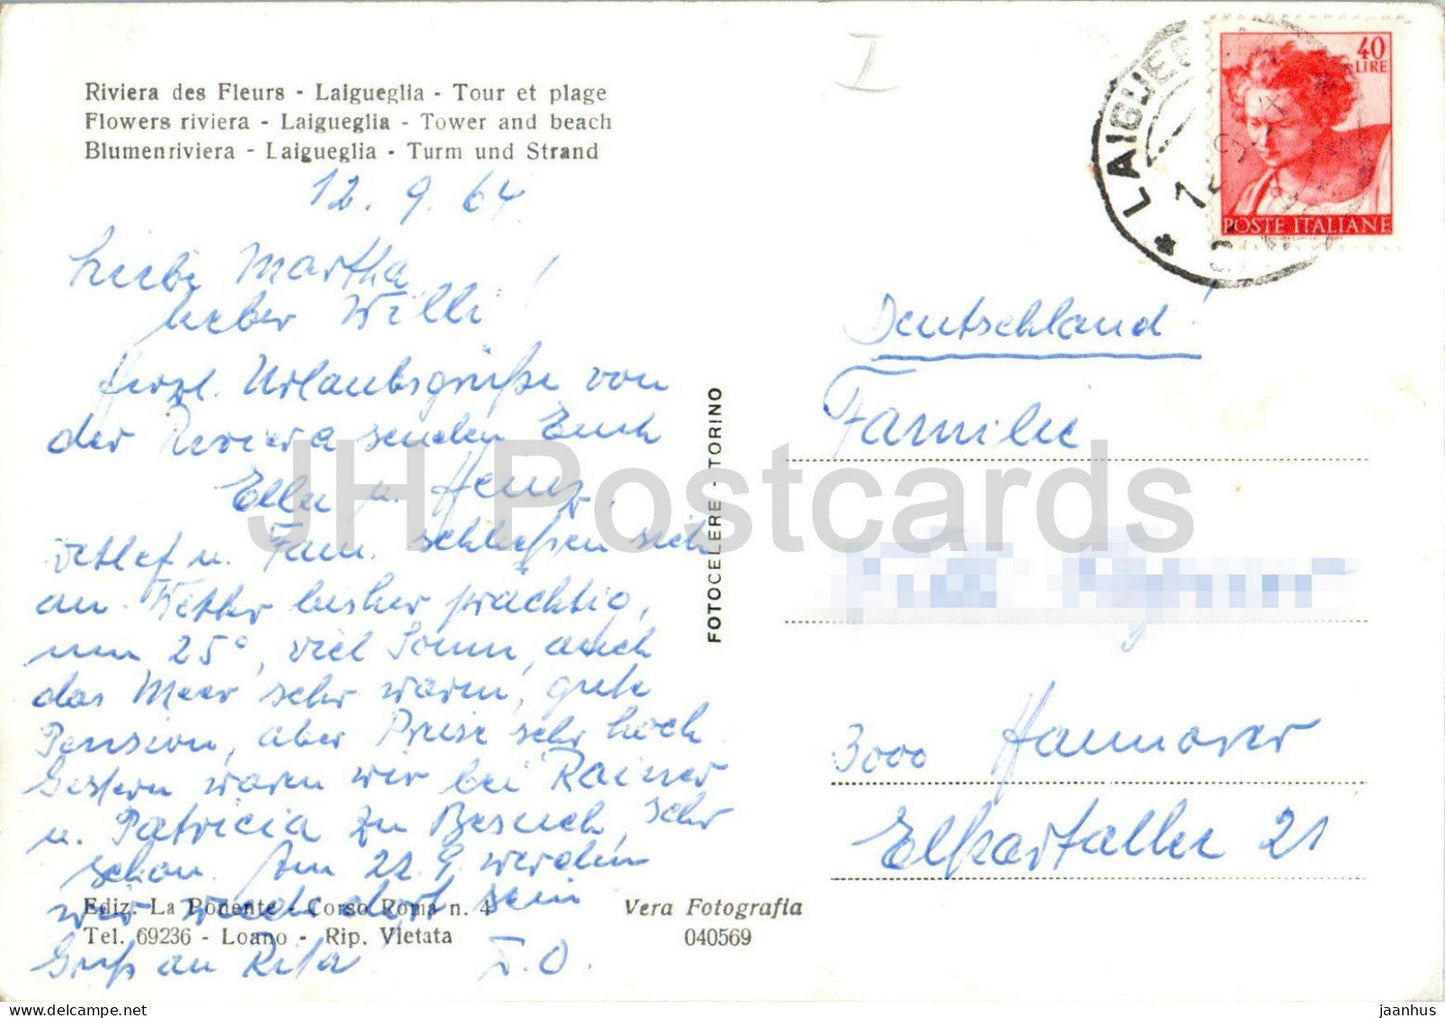 Riviera des Fleurs - Laigueglia - Tour et plage
Flowers riviera - Laigueglia - Tower and beach
Blumenriviera - Laigueglia - Turm und Strand
12. 9. 64
Liebe Martha,
lieber Willi!
Herzl. Urlaubsgrüße von
der Riviera senden Euch
Ella u. Heinz.
Detlef u. Fam. schließen sich
an. Wetter bisher prächtig,
um 25°, viel Sonne, auch
das Meer sehr warm, gute
Pension, aber Preise sehr hoch
Gestern waren wir bei Rainer
u. Patricia zu Besuch, sehr
schön. Am 22. 9. werden
wir dort sein
Gruß an Rita D.O.
Ediz. La Ponente - Corso Roma n. 4
Tel. 69236 - Loano - Rip. Vietata
Vera Fotografia
040569
FOTOCELERE - TORINO
LAIGUEG
40
LIRE
POSTE ITALIANE
Deutschland!
Familie
3000 Hannover
21
JH Postcards
jaanhus